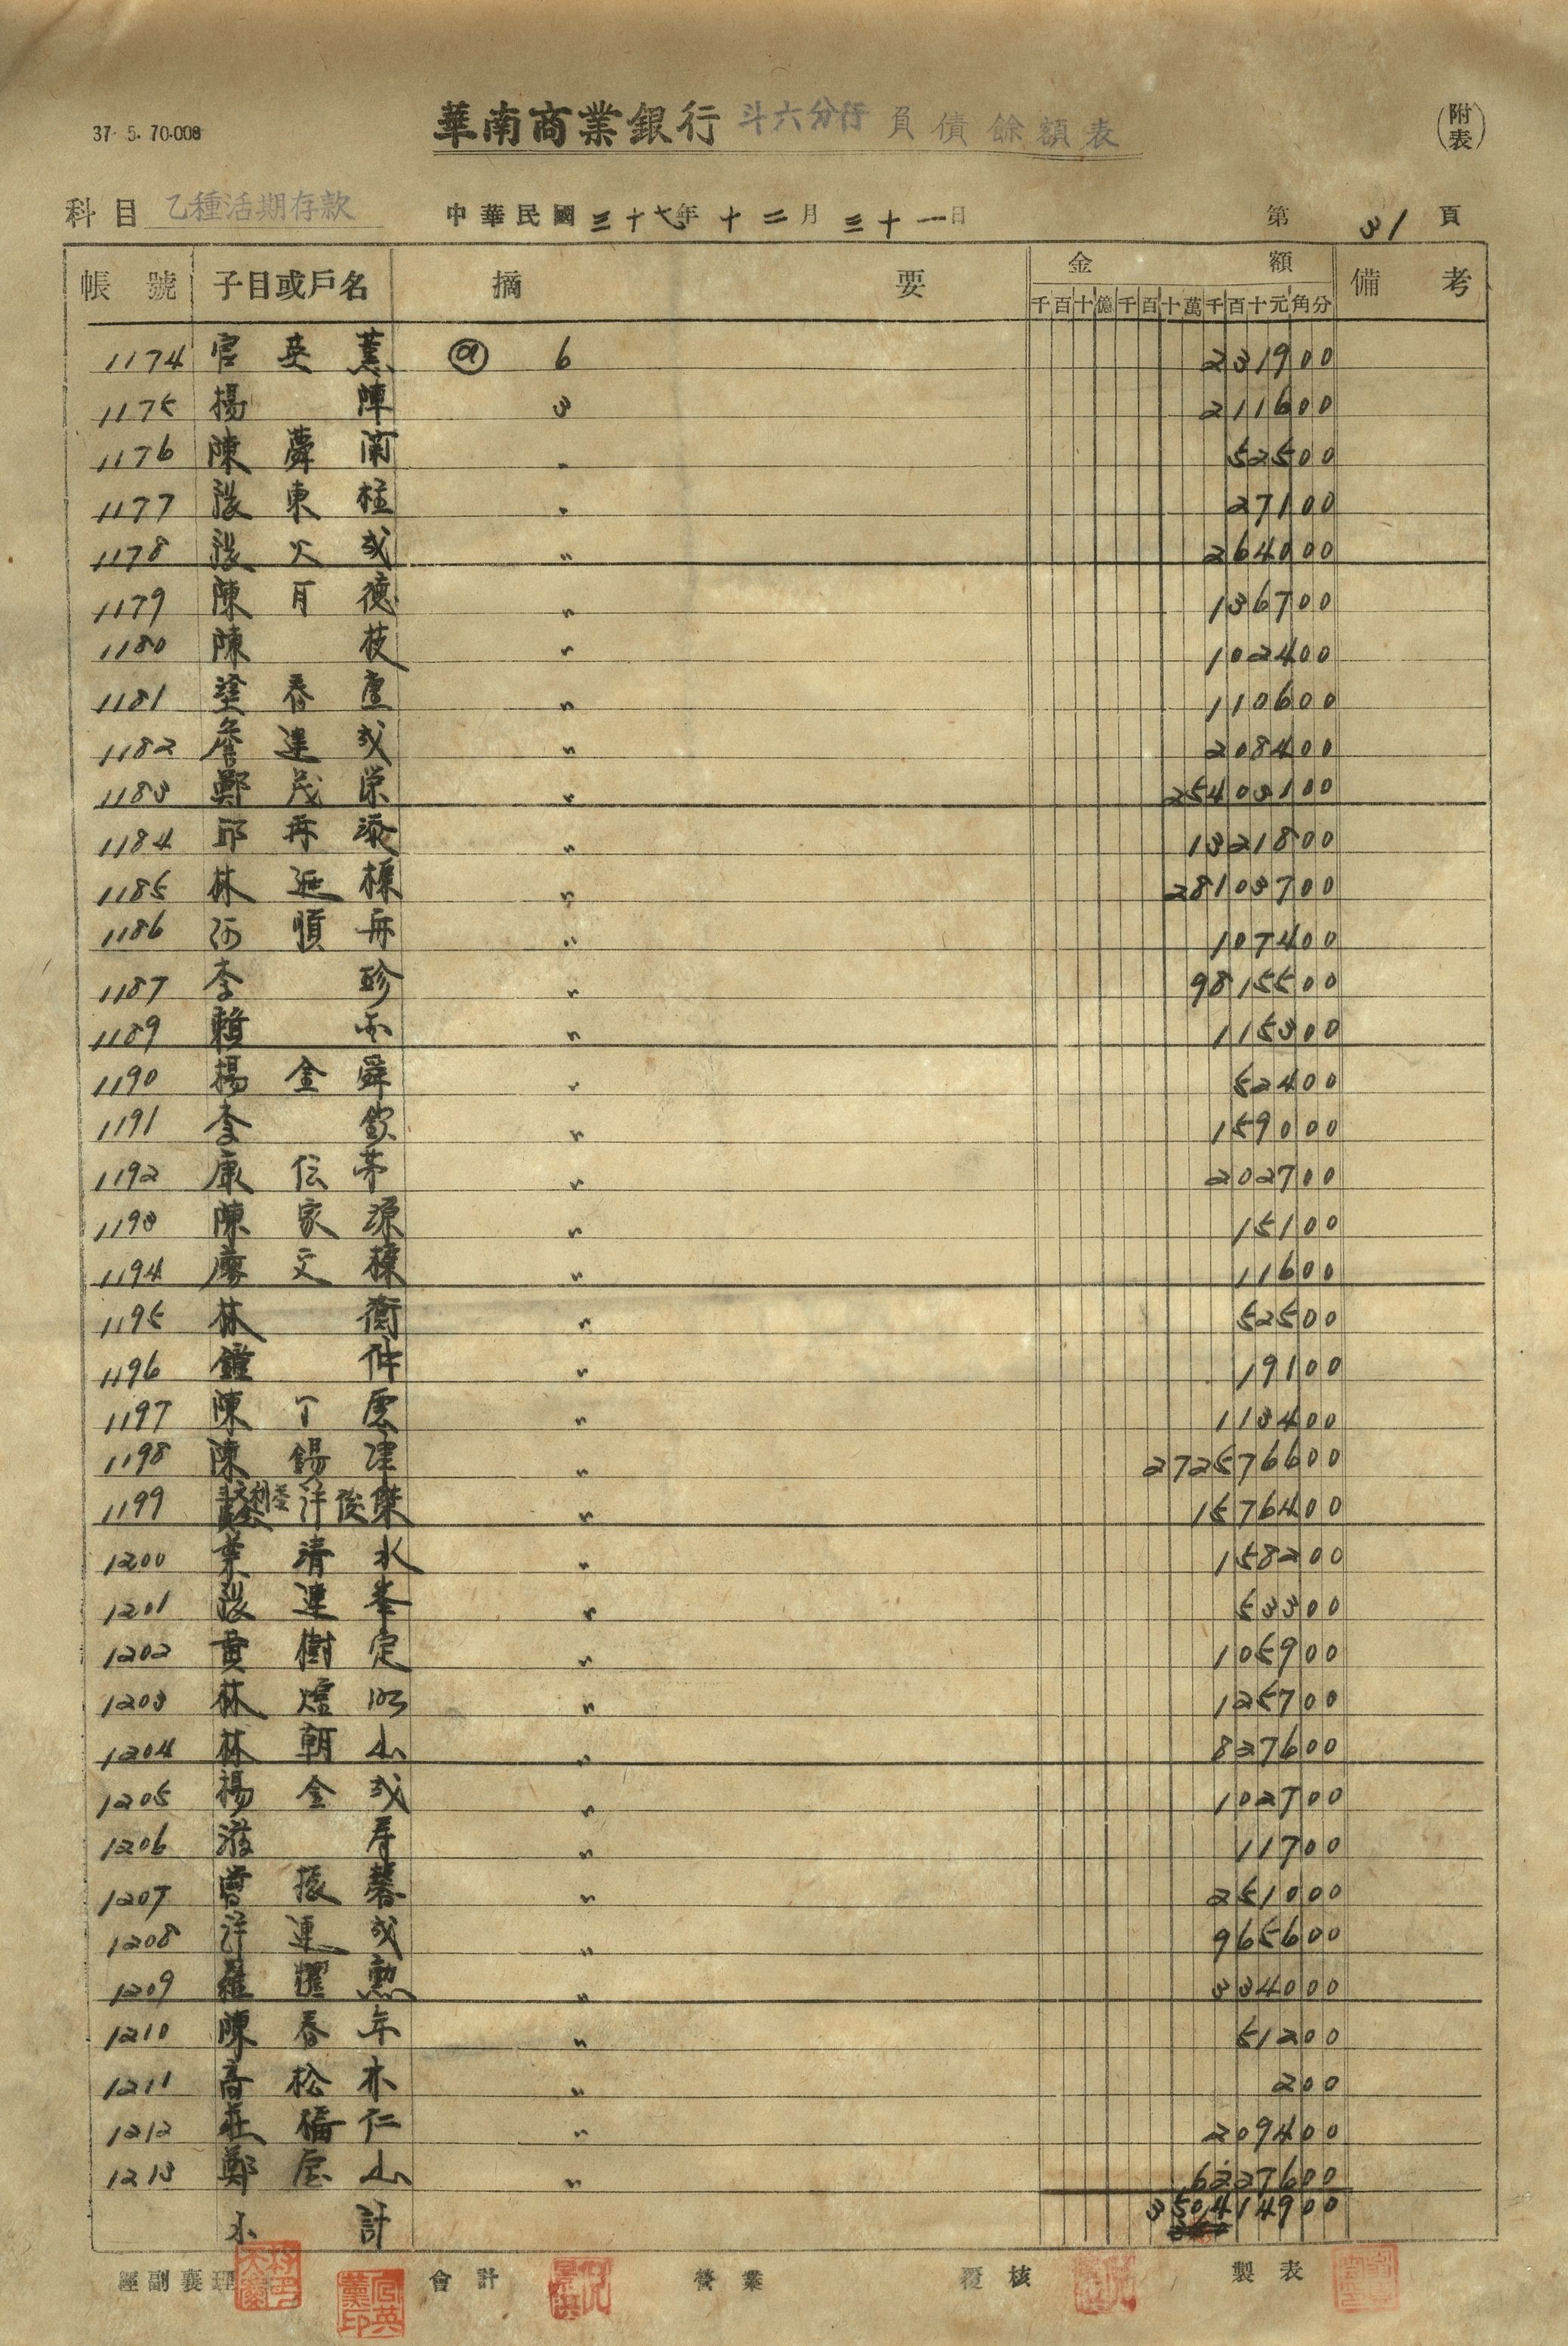 37. 5. 70.000
華南商業銀行 斗六分行 負債餘額表
(附表)
科目 乙種活期存款 中華民國三十七年十二月三十一日 第31頁
帳號 子目或戶名 摘要 金額 備考
千百十億千百十萬千百十元角分
1174 官 薰 6 231900
1175 楊陣 3 211600
1176 陳夢蘭 〃 52500
1177 張東柱 〃 27100
1178 張 成 〃 264000
1179 陳百德 〃 136700
1180 陳枝 〃 102400
1181 塗春 〃 110600
1182 詹連成 〃 208400
1183 鄭茂榮 〃 25403100
1184 邱再添 〃 1321800
1185 林延標 〃 28103700
1186 河順再 〃 107400
1187 李珍 〃 9815500
1189 賴 〃 115300
1190 楊金舜 〃 52400
1191 李欽 〃 159000
1192 康伝茅 〃 202700
1193 陳家源 〃 15100
1194 廖文樑 〃 11600
1195 林衡 〃 52500
1196 鐘仲 〃 19100
1197 陳丁雲 〃 113400
1198 陳錫津 〃 272576600
1199 洋俊傑 〃 1576400
1200 葉清水 〃 158200
1201 張連峯 〃 53300
1202 黃樹定 〃 105900
1203 林煌 〃 125700
1204 林朝山 〃 827600
1205 楊金成 〃 102700
1206 游 〃 11700
1207 曾振馨 〃 251000
1208 洋連成 〃 965600
1209 羅耀勲 〃 334000
1210 陳春年 〃 51200
1211 高松木 〃 200
1212 莊福仁 〃 209400
1213 鄭 山 〃 6227600
小計 350414900
經副襄理 會計 營業 覆核 製表